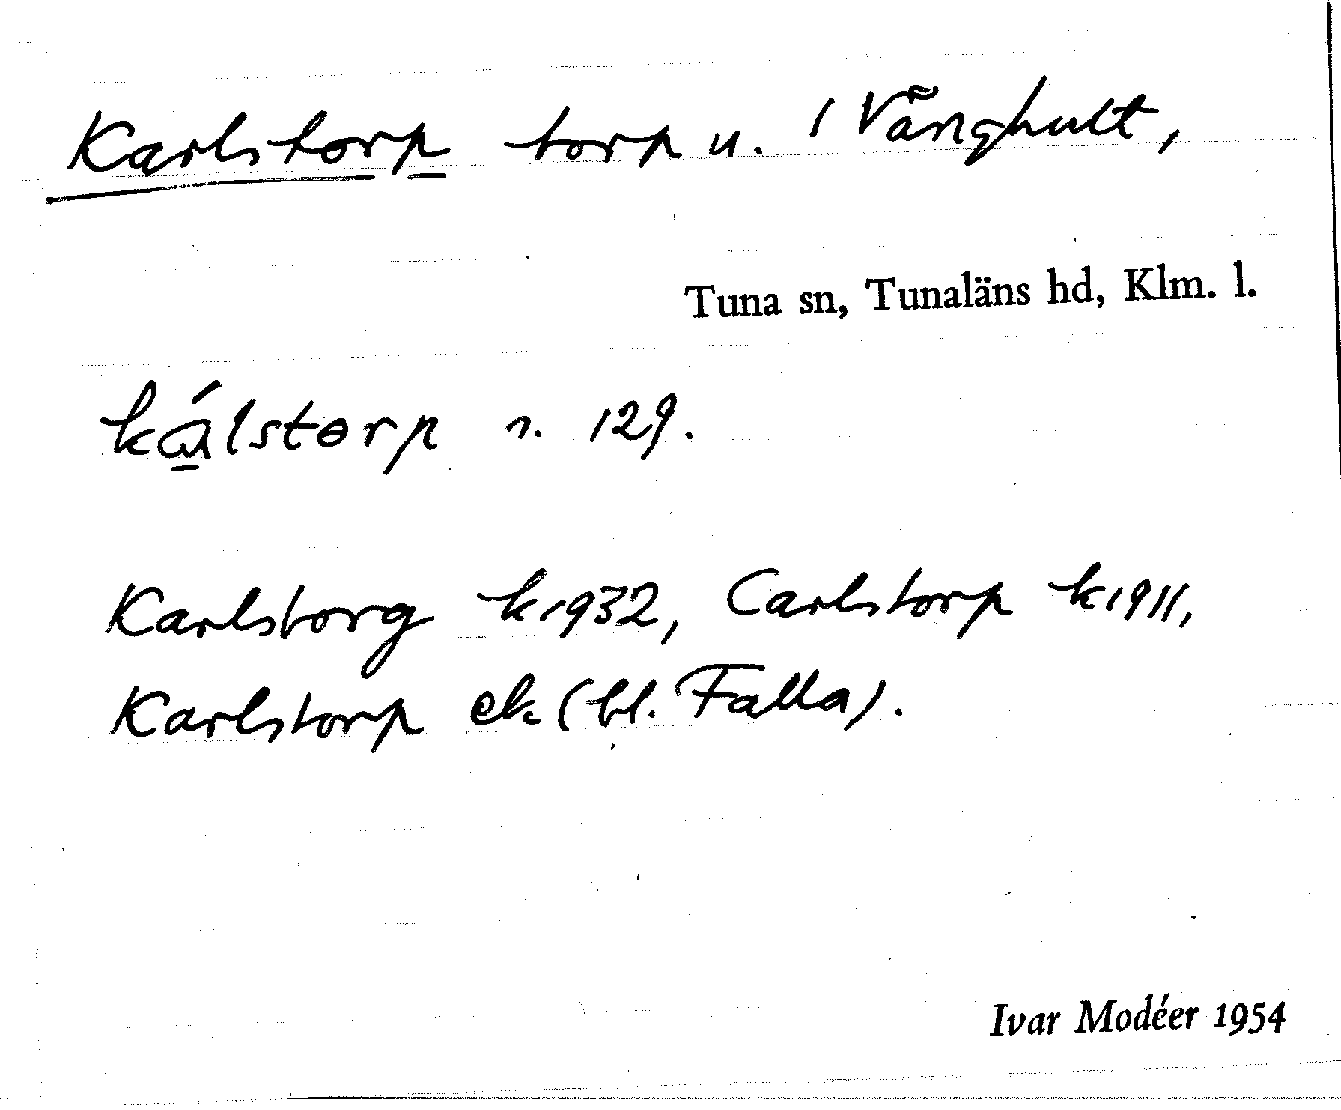 Karlstorp torp u. 1 Vånghult,
Tuna sn, Tunaläns hd, Klm. l.
kálstɵrp n. 129.
Karlstorg k 1932, Carlstorp k 1911,
Karlstorp ek (bl. Falla).
Ivar Modéer 1954